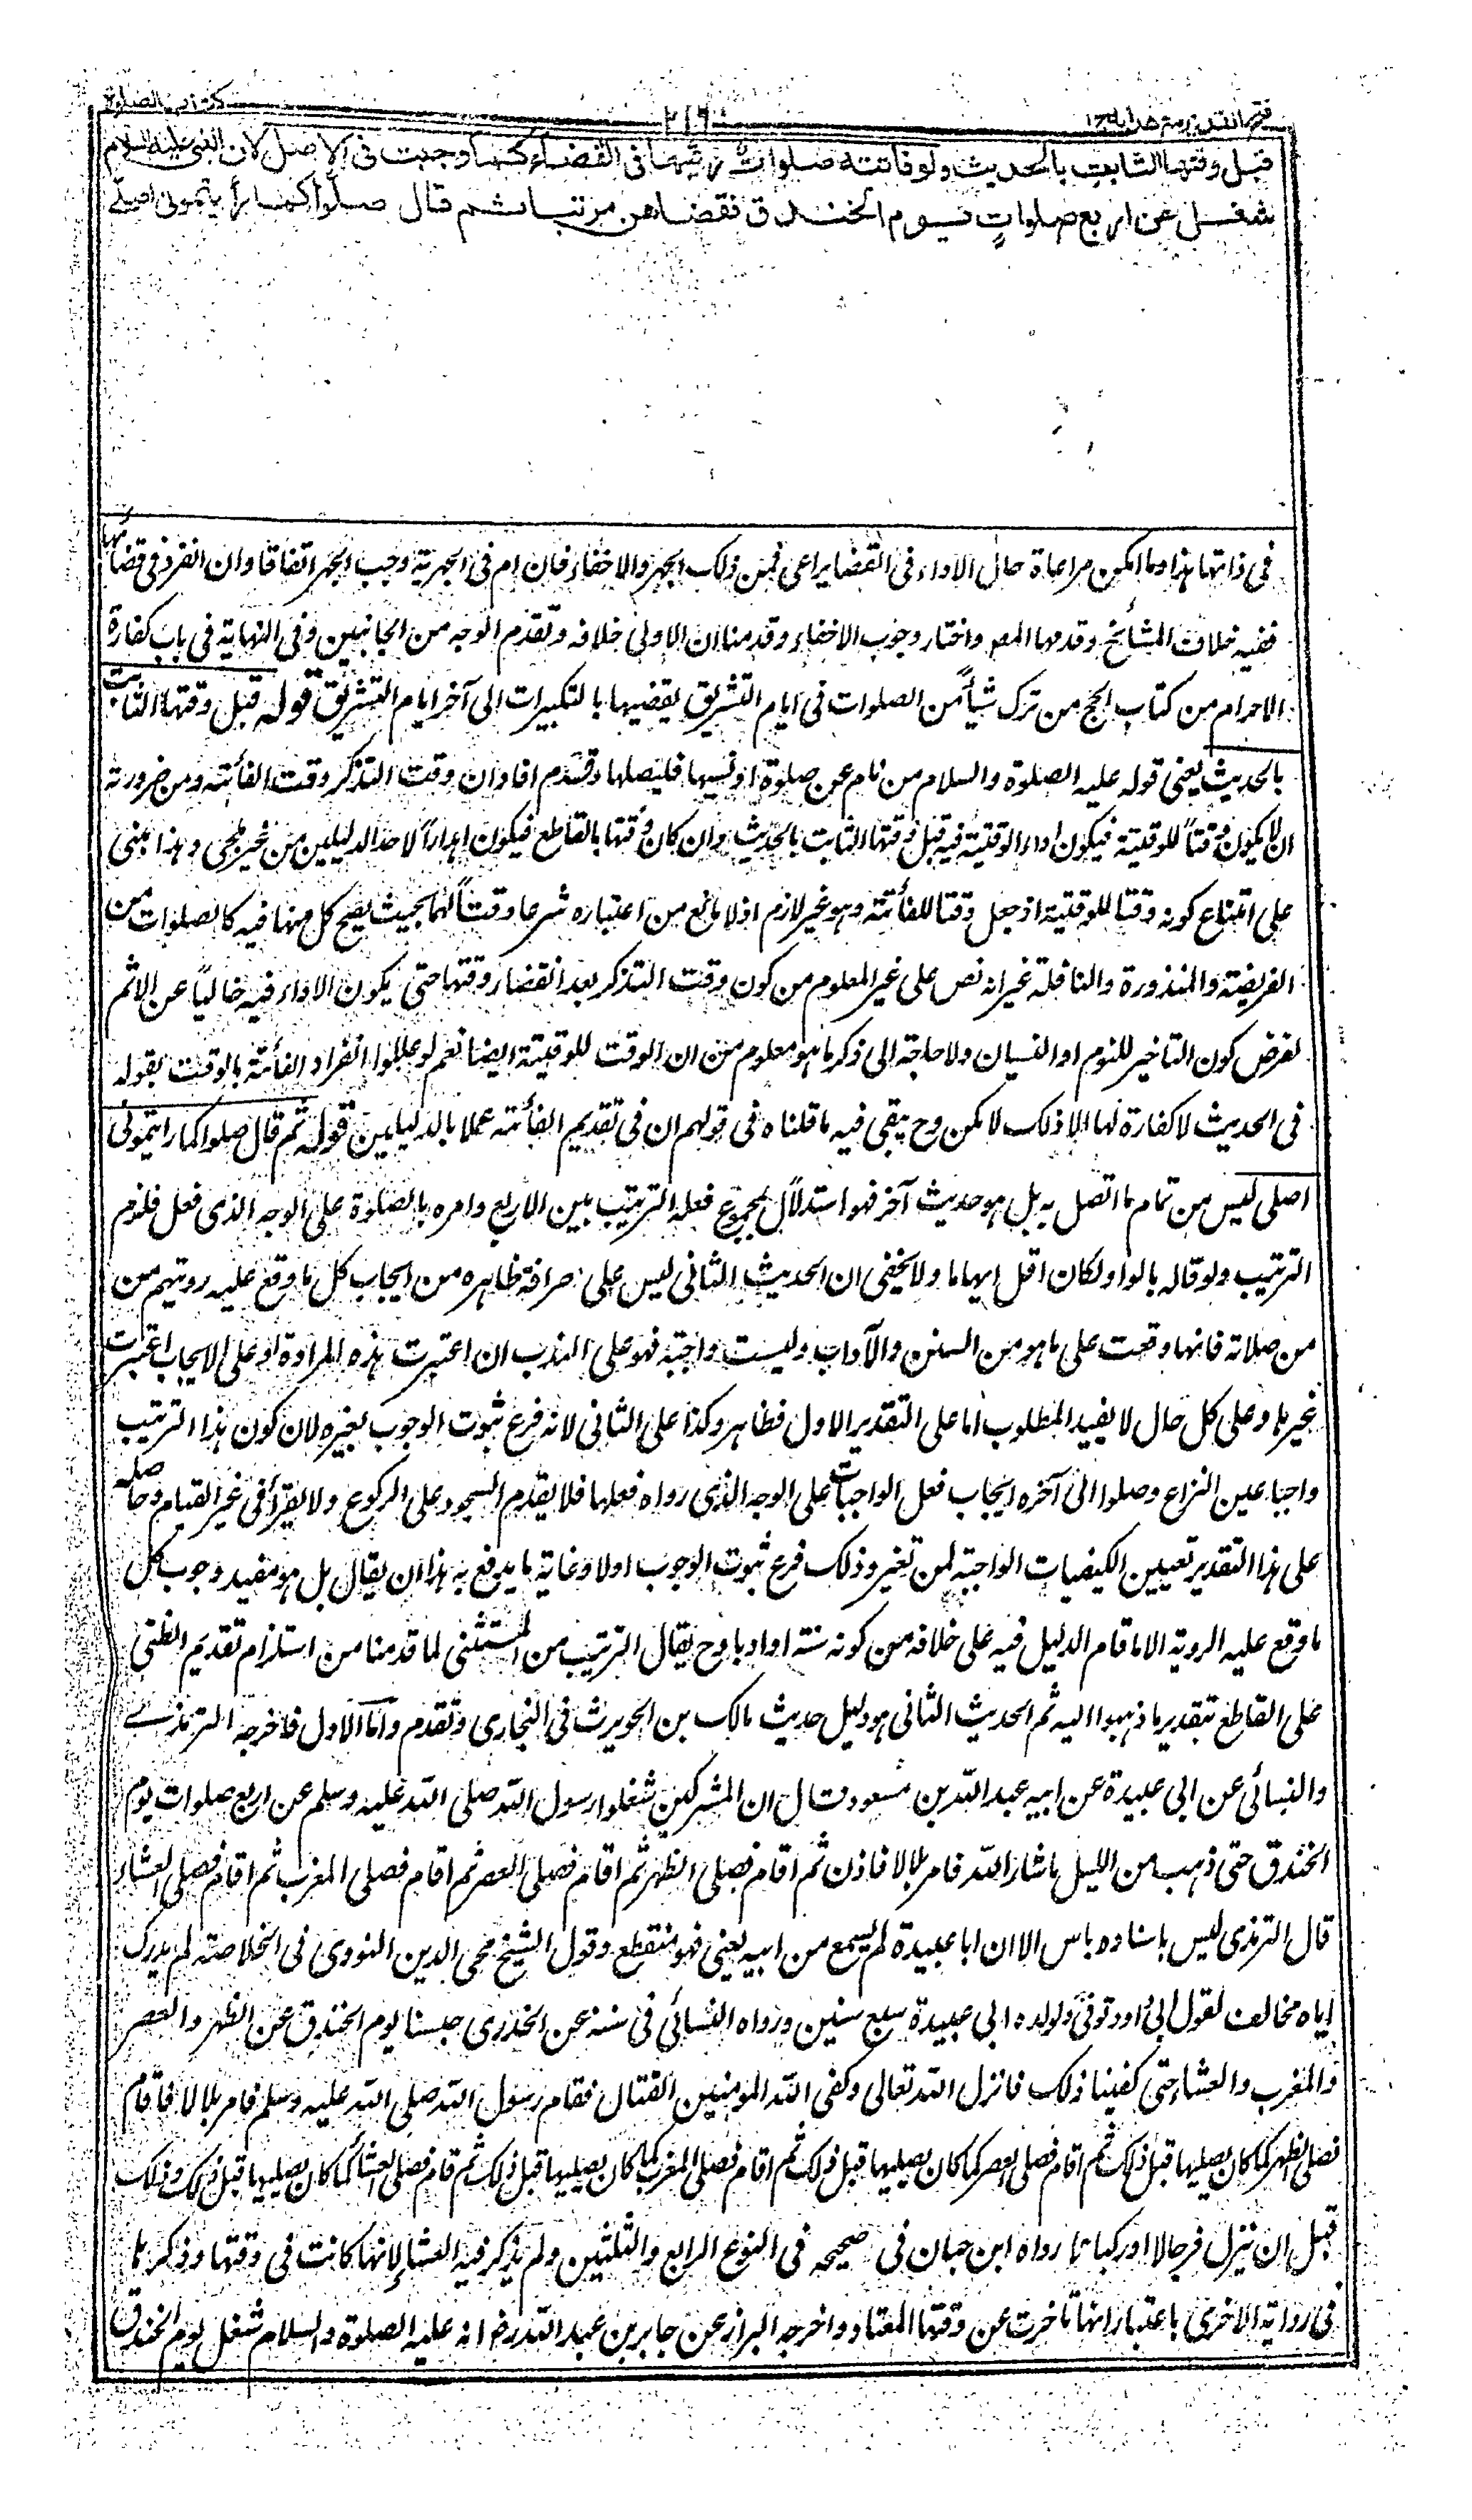 فتح القدير مع هداية ج ١
٢١٦
كتاب الصلوة
قبل وقتها الثابت بالحديث ولو فاتته صلوات رتبها في القضاء كما وجبت في الاصل لان النبي عليه السلام
شغل عن اربع صلوات يوم الخندق فقضاهن مرتبا ثم قال صلوا كما رأيتموني اصلي
في ذاتها هذا وما امكن مراعاة حال الاداء في القضا يراعى فمن ذلك الجهر والاخفاء فان ام في الجهرية وجب الجهر اتفاقا وان انفرد في قضائها
ففيه خلاف المشائخ وقدمها المصـ واختار وجوب الاخفاء وقدمنا ان الاولى خلافه وتقدم الوجه من الجانبين وفي النهاية في باب كفارة
الاحرام من كتاب الحج من ترك شيأً من الصلوات في ايام التشريق يقضيها بالتكبيرات الى آخر ايام التشريق قوله قبل وقتها الثابت
بالحديث يعني قوله عليه الصلوة والسلام من نام عن صلوة او نسيها فليصلها وقدم افاد ان وقت التذكر وقت الفائتة ومن ضرورته
ان لا يكون وقتاً للوقتية فيكون اداء الوقتية فيه قبل وقتها الثابت بالحديث وان كان وقتها بالقاطع فيكون اهداراً لاحد الدليلين من غير ملجى وهذا يبنى
على امتناع كونه وقتا للوقتية اذ جعل وقتا للفائتة وهو غير لازم اذ لا مانع من اعتباره شرعا وقتاً لهما بحيث يصح كل منها فيه كالصلوات من
الفريضة والمنذورة والنافلة غير انه نص على غير المعلوم من كون وقت التذكر بعد انقضاء وقتها حتى يكون الاداء فيه خالياً عن الاثم
لفرض كون التاخير للنوم او النسيان ولا حاجة الى ذكر ما هو معلوم من ان الوقت للوقتية ايضا نعم لو عللوا انفراد الفائتة بالوقت بقوله
في الحديث لا كفارة لها الا ذلك لامكن وح يبقى فيه ما قلناه في قولهم ان في تقديم الفائتة عملا بالدليلين قوله ثم قال صلوا كما رأيتموني
اصلي ليس من تمام ما اتصل به بل هو حديث آخر فهو استدلال بمجموع فعله الترتيب بين الاربع وامره بالصلوة على الوجه الذي فعل فلزم
الترتيب ولو قاله بالواو لكان اقل ايهاما ولا يخفى ان الحديث الثاني ليس على صرافة ظاهره من ايجاب كل ما وقع عليه رويتهم من
من صلاته فانها وقعت على ما هو من السنن والآداب وليست واجبة فهو على الندب ان اعتبرت هذه المرادة او على الايجاب اعتبرت
غيرها وعلى كل حال لا يفيد المطلوب اما على التقدير الاول فظاهر وكذا على الثاني لانه فرع ثبوت الوجوب بغيره لان كون هذا الترتيب
واجبا عين النزاع وصلوا الى آخره ايجاب فعل الواجبات على الوجه الذي رواه فعلها فلا يقدم السجود على الركوع ولا يقرأ في غير القيام وحاصله
على هذا التقدير تعيين الكيفيات الواجبة لمن تغير وذلك فرع ثبوت الوجوب اولا وغاية ما يدفع به هذا ان يقال بل هو مفيد وجوب كل
ما وقع عليه الروية الا ما قام الدليل فيه على خلافه من كونه سنة او ادبا وح يقال الترتيب من المستثنى لما قدمنا من استلزام تقديم الظني
على القاطع بتقدير ما ذهبوا اليه ثم الحديث الثاني هو دليل حديث مالك بن الحويرث في البخاري وتقدم واما الاول فاخرجه الترمذي
والنسائي عن ابي عبيدة عن ابيه عبد الله بن مسعود قال ان المشركين شغلوا رسول الله صلى الله عليه وسلم عن اربع صلوات يوم
الخندق حتى ذهب من الليل ما شاء الله فامر بلالا فاذن ثم اقام فصلى الظهر ثم اقام فصلى العصر ثم اقام فصلى المغرب ثم اقام فصلى العشاء
قال الترمذي ليس باسناده باس الا ان ابا عبيدة لم يسمع من ابيه يعني فهو منقطع وقول الشيخ محي الدين النووي في الخلاصة لم يدرك
اياه مخالف لقول ابي داود توفى ولولده ابي عبيدة سبع سنين ورواه النسائي في سننه عن الخدري حبسنا يوم الخندق عن الظهر والعصر
والمغرب والعشاء حتى كفينا ذلك فانزل الله تعالى وكفى الله المومنين القتال فقام رسول الله صلى الله عليه وسلم فامر بلالا فاقام
فصلى الظهر كما كان يصليها قبل ذلك ثم اقام فصلى العصر كما كان يصليها قبل ذلك ثم اقام فصلى المغرب كما كان يصليها قبل ذلك ثم قام فصلى العشا كما كان يصليها قبل ذلك وذلك
قبل ان ينزل فرجالا او ركبانا رواه ابن حبان في صحيحه في النوع الرابع والثلثين ولم يذكر فيه العشاء لانها كانت في وقتها وذكرها
في رواية الاخرى باعتبار انها تاخرت عن وقتها المعتاد واخرجه البزار عن جابر بن عبد الله رضـ انه عليه الصلوة والسلام شغل يوم الخندق